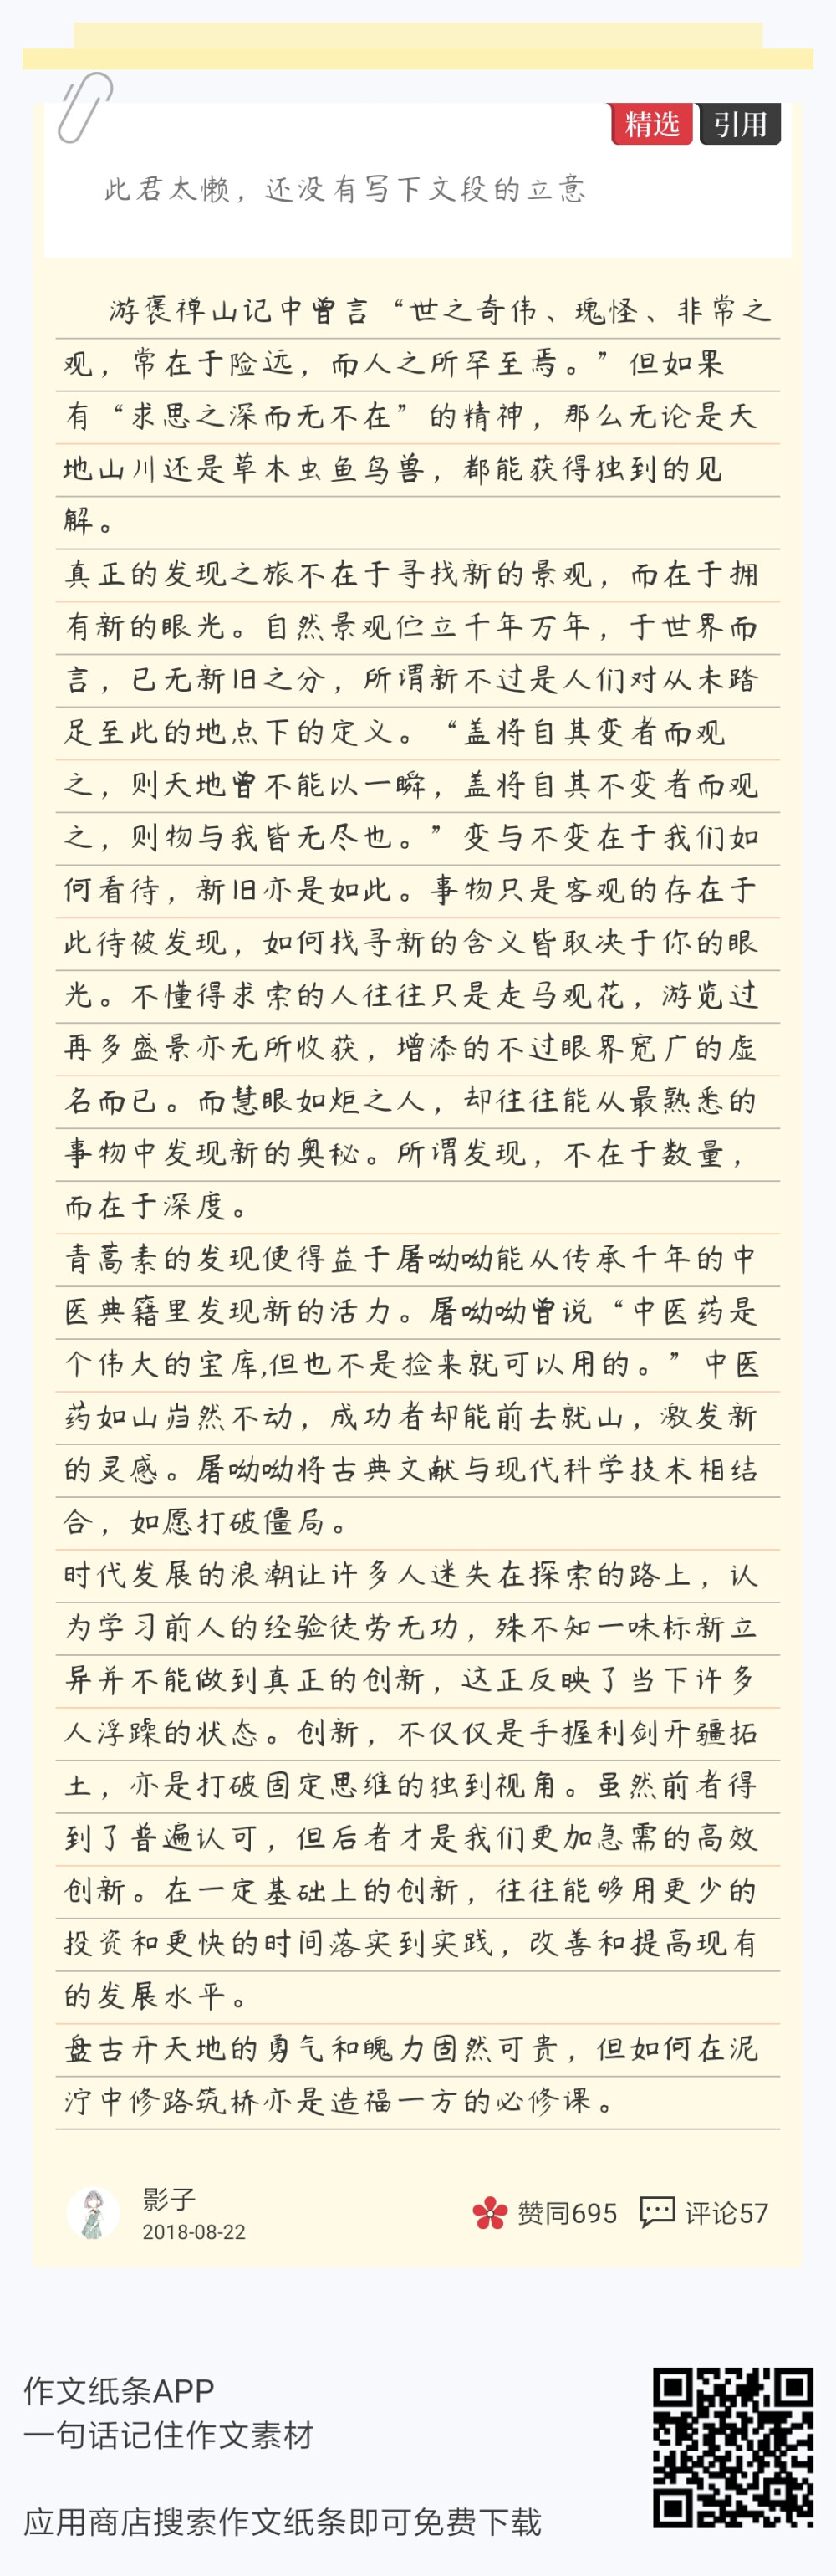 精选 引用
此君太懒，还没有写下文段的立意
游褒禅山记中曾言“世之奇伟、瑰怪、非常之
观，常在于险远，而人之所罕至焉。”但如果
有“求思之深而无不在”的精神，那么无论是天
地山川还是草木虫鱼鸟兽，都能获得独到的见
解。
真正的发现之旅不在于寻找新的景观，而在于拥
有新的眼光。自然景观伫立千年万年，于世界而
言，已无新旧之分，所谓新不过是人们对从未踏
足至此的地点下的定义。“盖将自其变者而观
之，则天地曾不能以一瞬，盖将自其不变者而观
之，则物与我皆无尽也。”变与不变在于我们如
何看待，新旧亦是如此。事物只是客观的存在于
此待被发现，如何找寻新的含义皆取决于你的眼
光。不懂得求索的人往往只是走马观花，游览过
再多盛景亦无所收获，增添的不过眼界宽广的虚
名而已。而慧眼如炬之人，却往往能从最熟悉的
事物中发现新的奥秘。所谓发现，不在于数量，
而在于深度。
青蒿素的发现便得益于屠呦呦能从传承千年的中
医典籍里发现新的活力。屠呦呦曾说“中医药是
个伟大的宝库,但也不是捡来就可以用的。”中医
药如山岿然不动，成功者却能前去就山，激发新
的灵感。屠呦呦将古典文献与现代科学技术相结
合，如愿打破僵局。
时代发展的浪潮让许多人迷失在探索的路上，认
为学习前人的经验徒劳无功，殊不知一味标新立
异并不能做到真正的创新，这正反映了当下许多
人浮躁的状态。创新，不仅仅是手握利剑开疆拓
土，亦是打破固定思维的独到视角。虽然前者得
到了普遍认可，但后者才是我们更加急需的高效
创新。在一定基础上的创新，往往能够用更少的
投资和更快的时间落实到实践，改善和提高现有
的发展水平。
盘古开天地的勇气和魄力固然可贵，但如何在泥
泞中修路筑桥亦是造福一方的必修课。
影子
2018-08-22
赞同695 评论57
作文纸条APP
一句话记住作文素材
应用商店搜索作文纸条即可免费下载